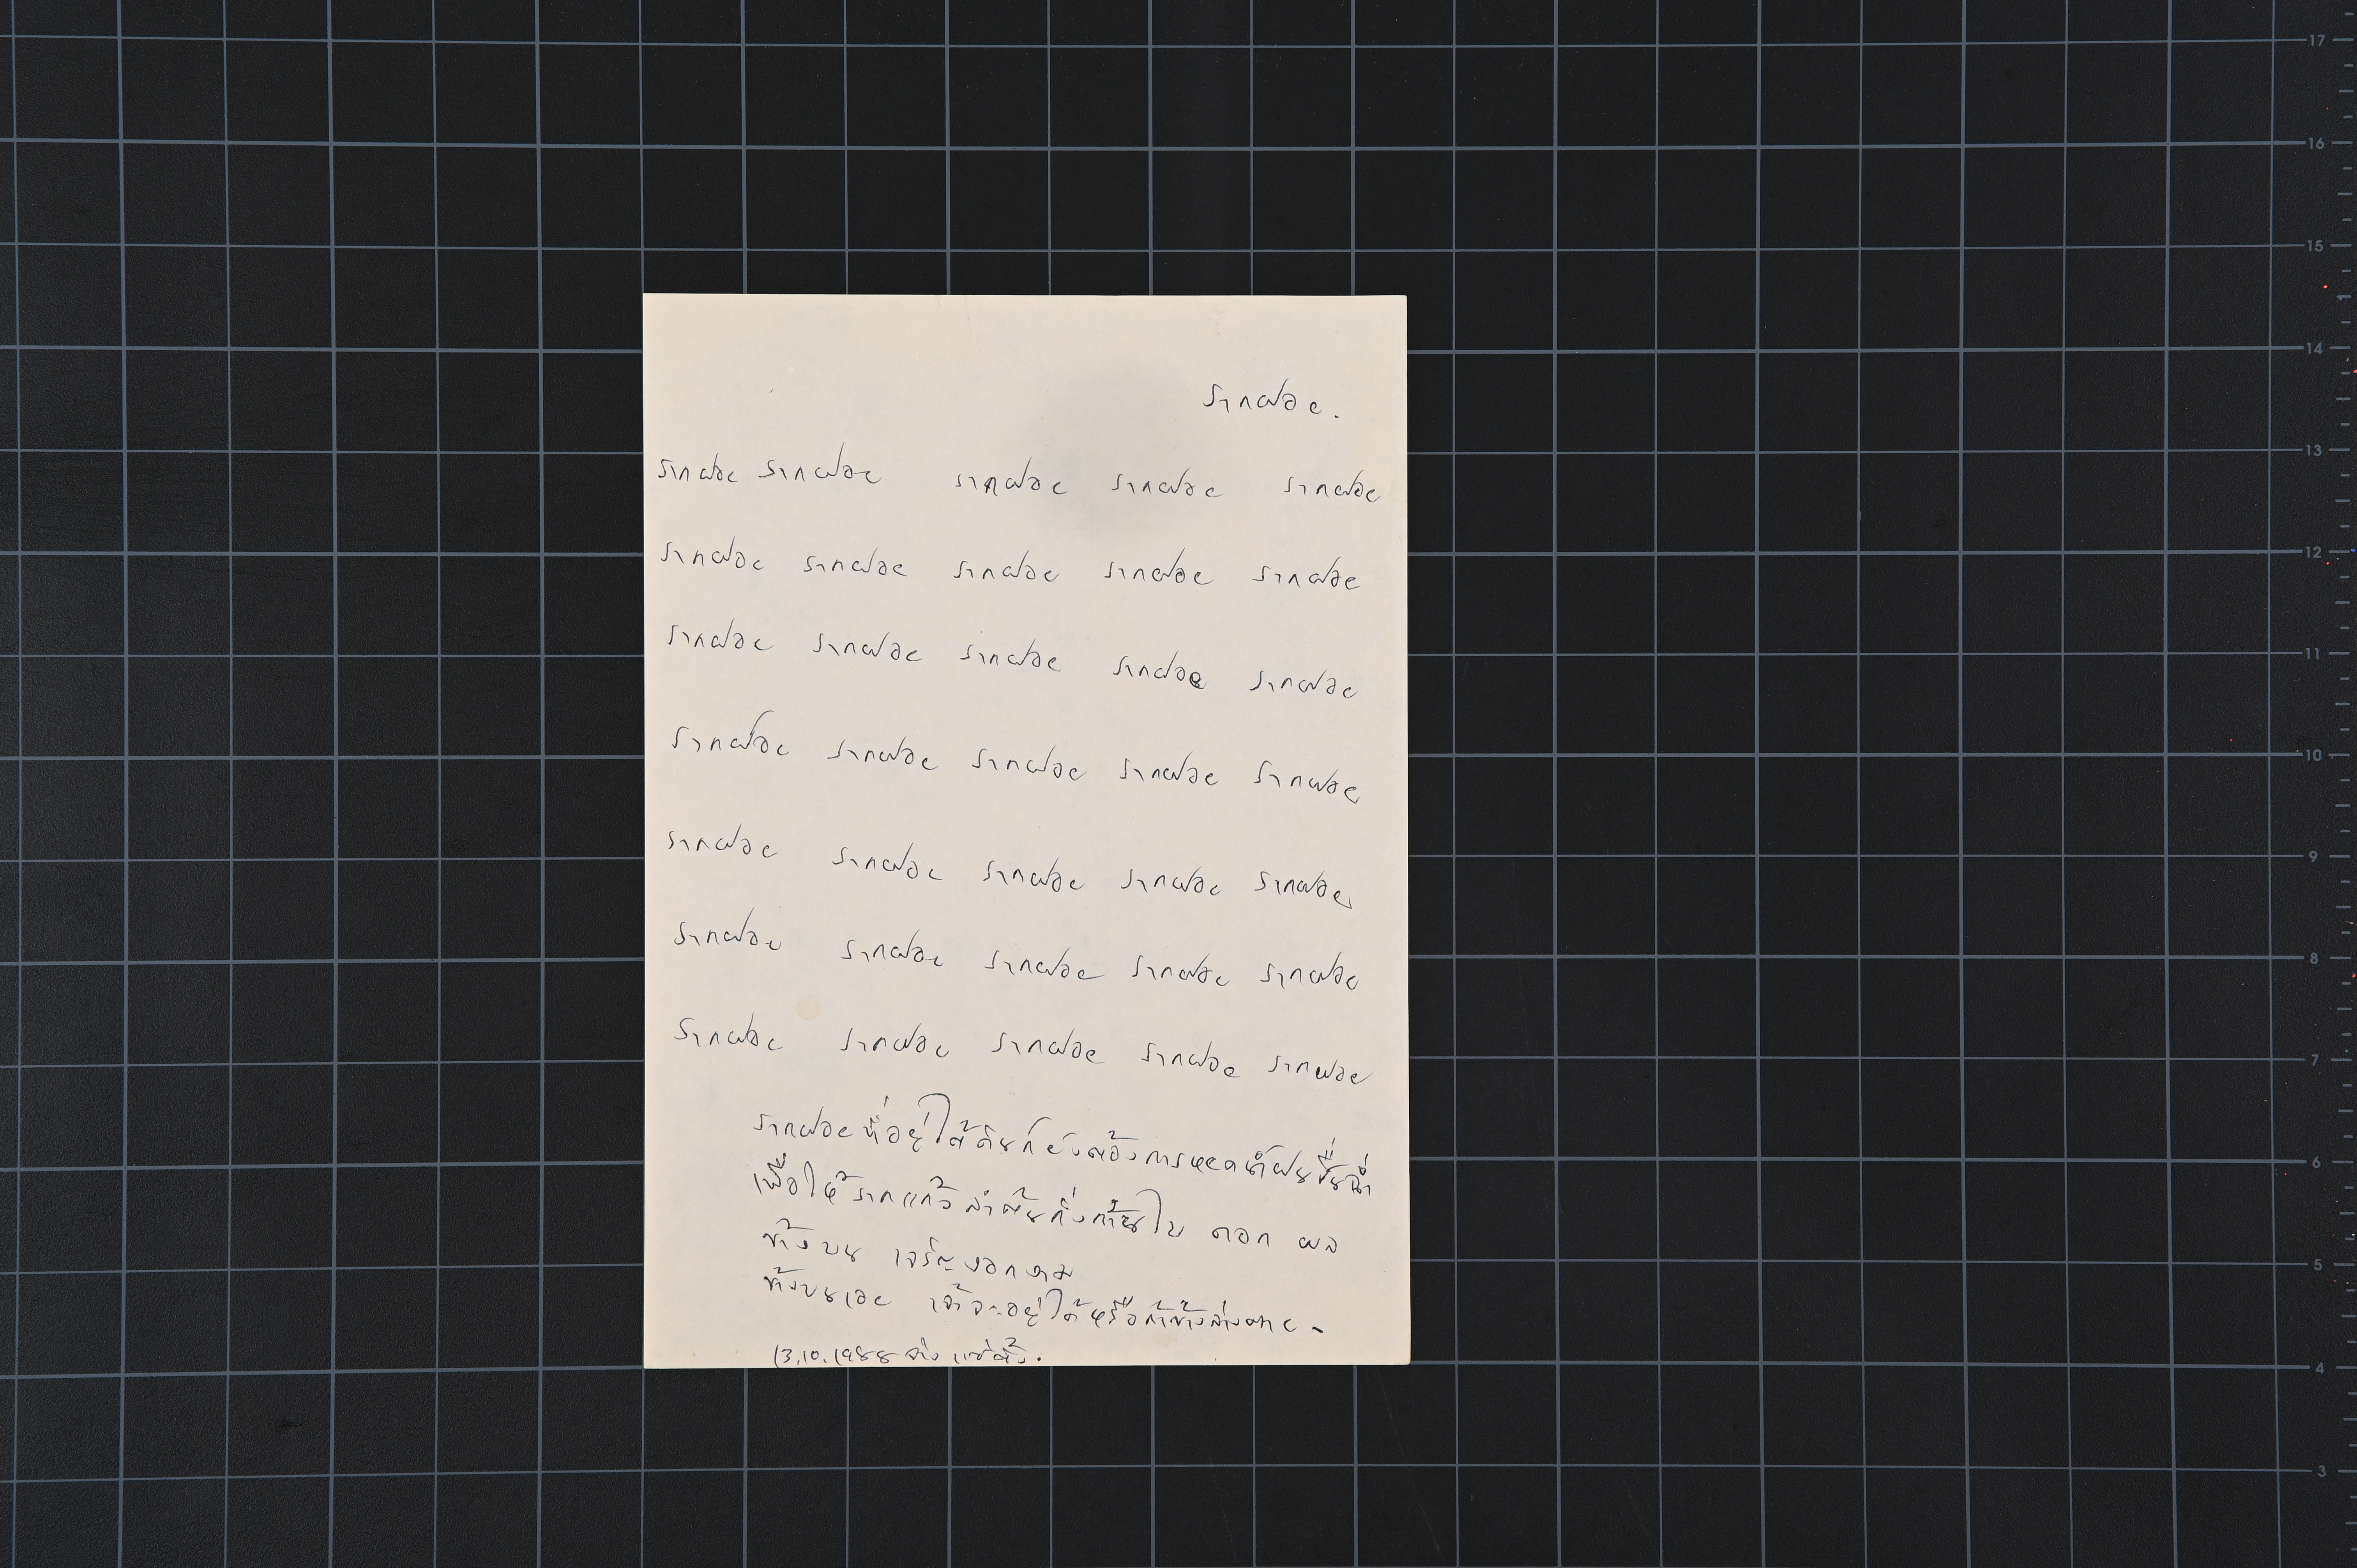 รากฝอย.
รากฝอย รากฝอย รากฝอย รากฝอย รากฝอย
รากฝอย รากฝอย รากฝอย รากฝอย รากฝอย
รากฝอย รากฝอย รากฝอย รากฝอย รากฝอย
รากฝอย รากฝอย รากฝอย รากฝอย รากฝอย
รากฝอย รากฝอย รากฝอย รากฝอย รากฝอย
รากฝอย รากฝอย รากฝอย รากฝอย รากฝอย
รากฝอย รากฝอย รากฝอย รากฝอย รากฝอย
รากฝอยที่อยู่ใต้ดินก็ยังต้องการหยดน้ำฝนชื่นฉ่ำ
เพื่อให้รากแก้วลำต้นกิ่งก้านใบ ดอก ผล
ข้างบน เจริญงอกงาม
ข้างบนเอย เจ้าจะอยู่ได้หรือถ้าข้างล่างตาย -
13.10.1988 จ่าง แซ่ตั้ง.
17
16
15
14
13
12
11
10
9
8
7
6
5
4
3